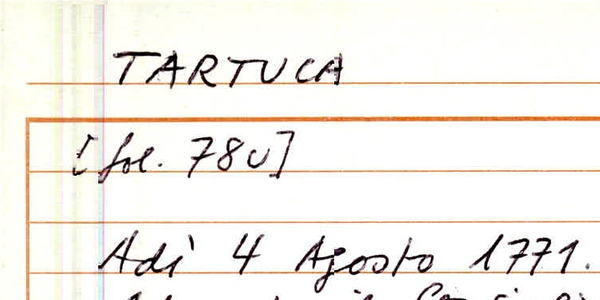 TARTUCA
[fol. 78v]
Adì 4 Agosto 1771.